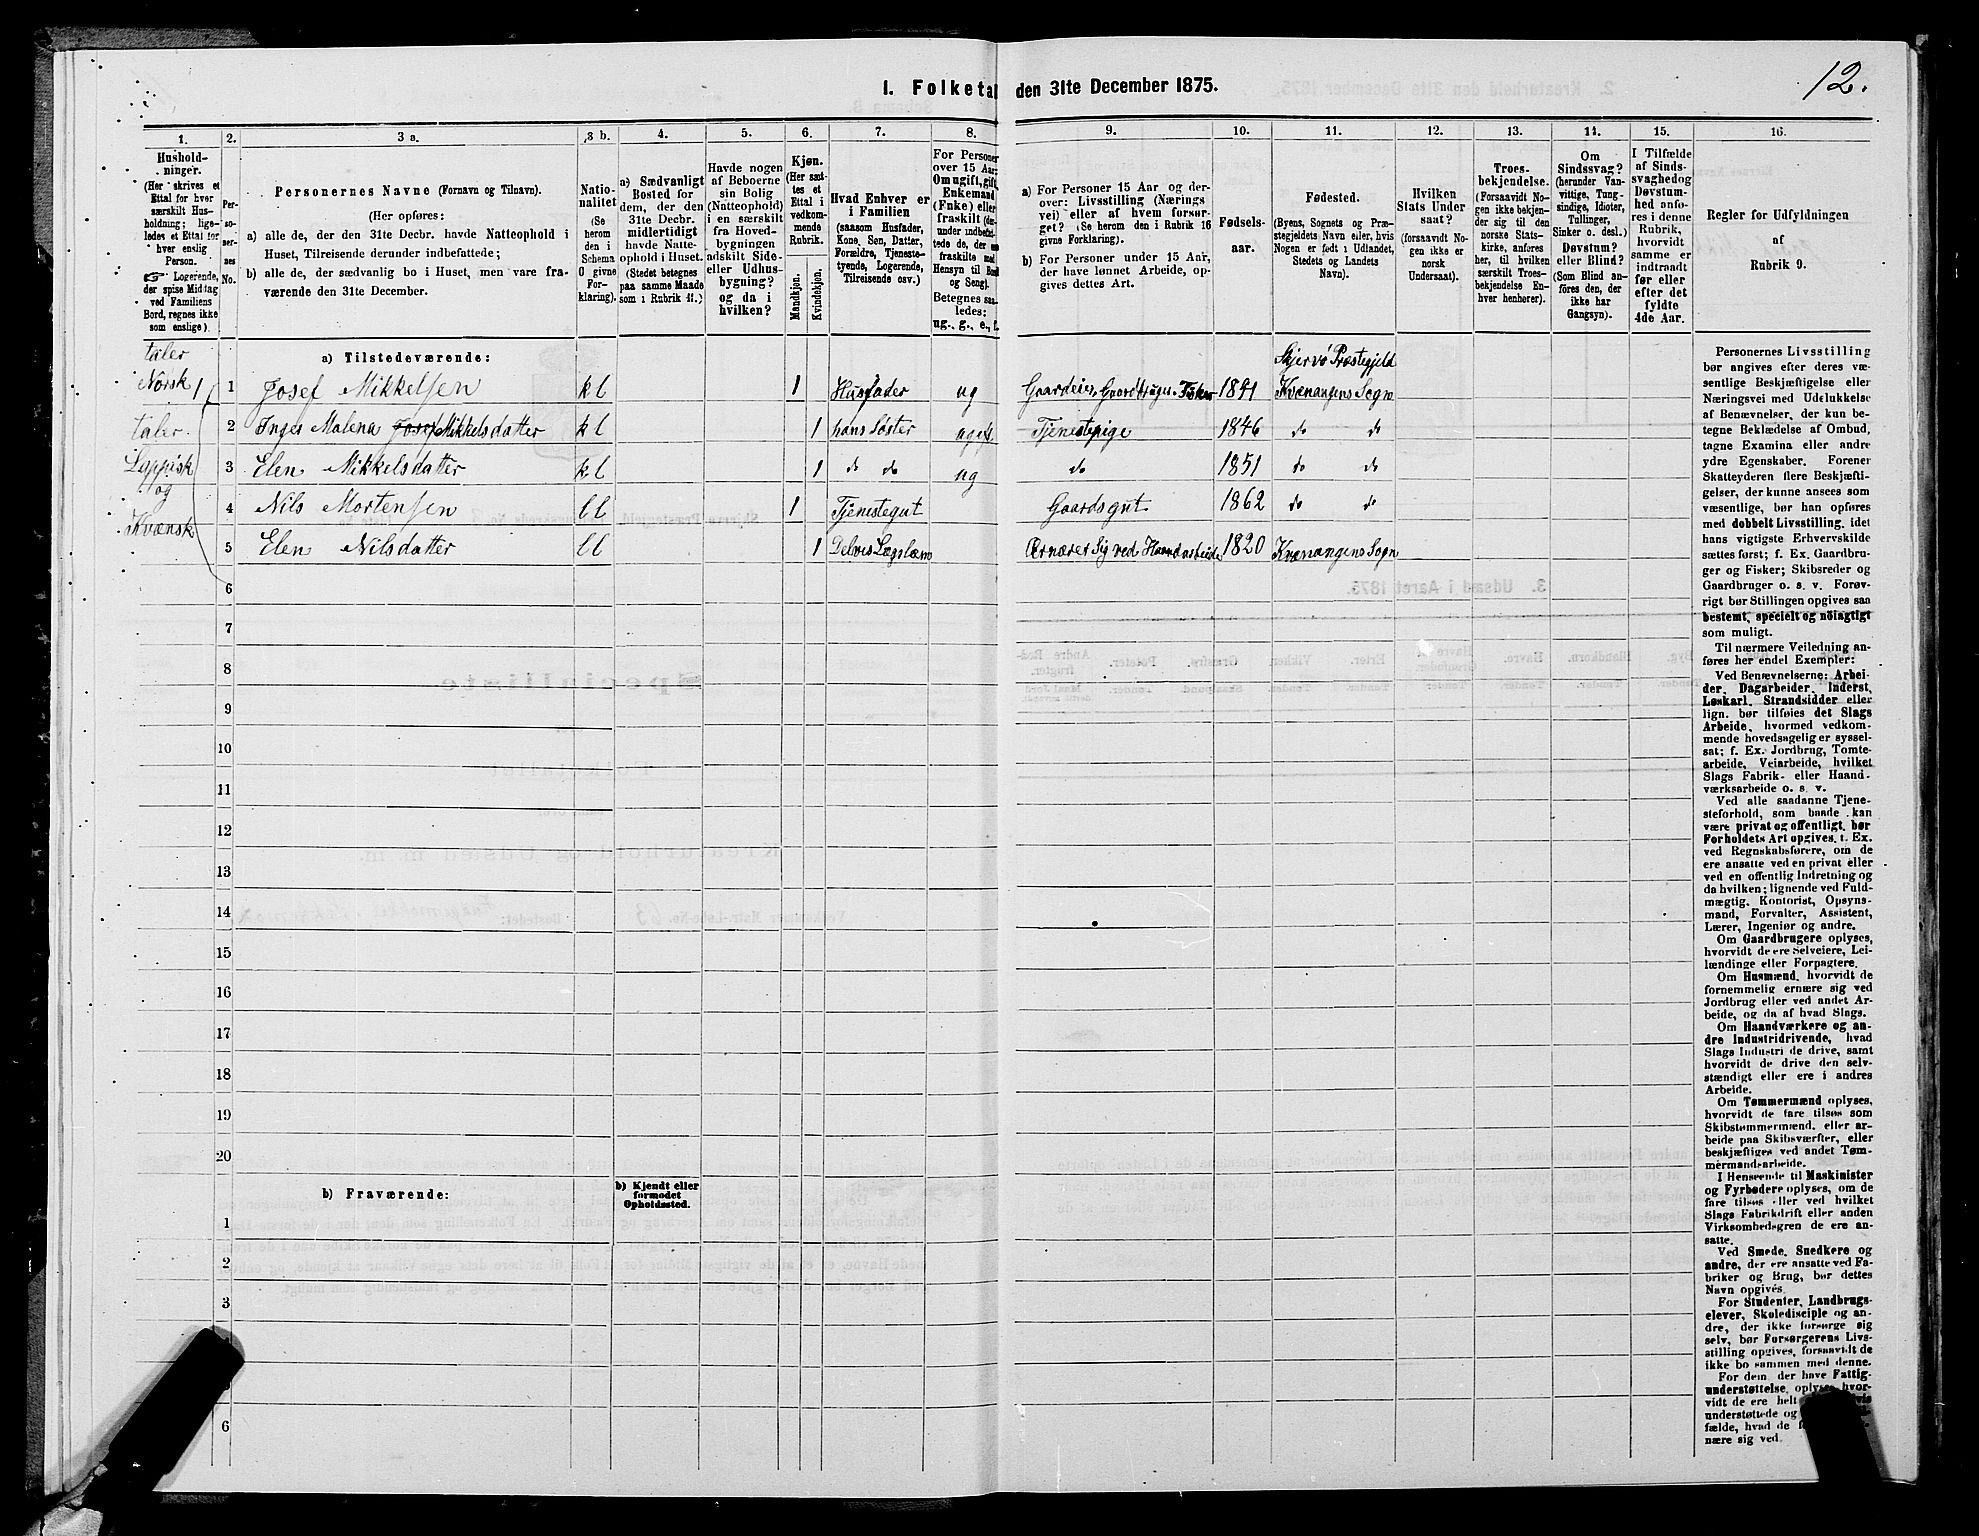 12.
I. Folketal den 31te December 1875.
1. 2. 3 a. 3 b. 4. 5. 6. 7. 8. 9. 10. 11. 12. 13. 14. 15. 16.
Hushold-
ninger.
(Her skrives et
Ettal for hver
særskilt Hus-
holdning; lige-
ledes et Ettal for
hver enslig
Person.
☞ Logerende,
der spise Middag
ved Familiens
Bord, regnes ikke
som enslige).
Per-
so-
ner-
nes
No.
Personernes Navne (Fornavn og Tilnavn).
(Her opføres:
a) alle de, der den 31te Decbr. havde Natteophold i
Huset, Tilreisende derunder indbefattede;
b) alle de, der sædvanlig bo i Huset, men vare fra-
værende den 31te December.
Natio-
nalitet
(Se
herom
den i
Schema
O givne
For-
klaring).
a) Sædvanligt
Bosted for
dem, der den
31te Decbr.
midlertidigt
havde Natte-
ophold i Huset.
(Stedet betegnes
paa samme Maade
som i Rubrik 11.)
Havde nogen
af Beboerne
sin Bolig
(Natteophold)
i en særskilt
fra Hoved-
bygningen
adskilt Side-
eller Udhus-
bygning?
og da i
hvilken?
Kjøn.
(Her sæt-
tes et
Ettal i
vedkom-
mende
Rubrik.
Mandkjøn.
Kvindekjøn.
Hvad Enhver er
i Familien
(saasom Husfader,
Kone, Søn, Datter,
Forældre, Tjeneste-
tyende, Logerende,
Tilreisende osv.)
For Personer
over 15 Aar:
Om ugift, gift,
Enkemand
(Enke) eller
fraskilt
Betegnes saa-
ledes:
ug., g., e., f.
a) For Personer 15 Aar og der-
over: Livsstilling (Nærings
vei) eller af hvem forsør-
get? (Se herom den i Rubrik 16
givne Forklaring).
b) For Personer under 15 Aar,
der have lønnet Arbeide, op-
gives dettes Art.
Fødsels-
aar.
Fødested.
(Byens, Sognets og Præ-
stegjeldets Navn eller, hvis
Nogen er født i Udlandet,
Stedets og Landets
Navn).
Hvilken
Stats Under
saat?
(forsaavidt No-
gen ikke er
norsk
Undersaat).
Troes-
bekjendelse.
(Forsaavidt No-
gen ikke bekjen-
der sig til den
norske Stats-
kirke, anføres
her, til hvilken
særskilt Troes-
bekjendelse En-
hver henhører).
Om
Sindssvag?
(herunder Van-
vittige, Tung-
sindige, Idioter,
Tullinger,
Sinker o. desl.)
Døvstum?
eller Blind?
(Som Blind an-
føres den, der
ikke har
Gangsyn).
I Tilfælde
af Sinds-
svaghed og
Døvstum-
hed anfø-
res i denne
Rubrik,
hvorvidt
samme er
indtraadt
før eller
efter det
fyldte
4de Aar.
Regler for Udfyldningen
af
Rubrik 9.
a) Tilstedeværende:
taler
Norsk 1
taler
Lappisk
og
Kvænsk
Skjervø Præstegjeld
1 Josef Mikkelsen kl 1 Husfader ug Gaardeier, Gaardbruger. Fisker 1841 Kvænangens Sogn
2 Inger Malena Josef Mikkelsdatter kl 1 hans Søster ug Tjenestepige 1846 do do
3 Elen Mikkelsdatter kl 1 do do ug do 1851 do do
4 Nils Mortensen ll 1 Tjenestegut Gaardsgut 1862 do do
5 Elen Nilsdatter ll 1 Delvis Lægslæm Ærnærer Sig ved Haandarbeide 1820 Kvænangens Sogn
6
7
8
9
10
11
12
13
14
15
16
17
18
19
20
b) Fraværende:
b) Kjendt eller
formodet
Opholdssted.
1
2
3
6
Personernes Livsstilling
bør angives efter deres væ-
sentlige Beskjæftigelse eller
Næringsvei med Udelukkelse
af Benævnelser, der kun be-
tegne Beklædelse af Ombud,
tagne Examina eller andre
ydre Egenskaber. Forener
Skatteyderen flere Beskjæfti-
gelser, der kunne ansees som
væsentlige, bør han opføres
med dobbelt Livsstilling, idet
hans vigtigste Erhvervskilde
sættes først; f. Ex. Gaardbru-
ger og Fisker; Skibsreder og
Gaardbruger o. s. v. Forøv-
rigt bør Stillingen opgives saa
bestemt, specielt og nøiagtigt
som muligt.
Til nærmere Veiledning an-
føres her endel Exempler:
Ved Benævnelserne: Arbei-
der, Dagarbeider, Inderst,
Løskarl, Strandsidder eller
lign. bør tilføies det Slags
Arbeide, hvormed vedkom-
mende hovedsagelig er syssel-
sat; f. Ex. Jordbrug, Tomte-
arbeide, Veiarbeide, hvilket
Slags Fabrik- eller Haand-
værksarbeide o. s. v.
Ved alle saadanne Tjene-
steforhold, som baade kan
være privat og offentligt, bør
Forholdets Art opgives, t. Ex.
ved Regnskabsførere, om de
ere ansatte ved en privat eller
ved en offentlig Indretning og
da hvilken; lignende ved Fuld-
mægtig, Kontorist, Opsyns-
mand, Forvalter, Assistent,
Lærer, Ingeniør og andre.
Om Gaardbrugere oplyses,
hvorvidt de ere Selveiere, Lei-
lændinge eller Forpagtere.
Om Husmænd, hvorvidt de
fornemmelig ernære sig ved
Jordbrug eller ved andet Ar-
beide, og da af hvad Slags.
Om Haandværkere og an-
dre Industridrivende, hvad
Slags Industri de drive, samt
hvorvidt de drive den selv-
stændigt eller ere i andres
Arbeide.
Om Tømmermænd oplyses,
hvorvidt de fare tilsøs som
Skibstømmermænd, eller ar-
beide paa Skibsværfter, eller
beskjæftiges ved andet Tøm-
mermandsarbeide.
I Henseende til Maskinister
og Fyrbødere oplyses, om de
fare tilsøs eller ved hvilket
Slags Fabrikdrift eller anden
Virksomhedsgren de ere an-
satte.
Ved Smede, Snedkere og
andre, der ere ansatte ved Fa-
briker og Brug, bør dettes
Navn opgives.
For Studenter, Landbrugs-
elever, Skoledisciple og an-
dre, der ikke forsørge sig
selv, bør Forsørgerens Livs-
stilling opgives, forsaavidt de
ikke bo sammen med denne.
For dem, der have Fattig-
understøttelse, oplyses, hvor-
vidt de ere helt
understøttede og
fælde, hvad de
nære sig ved.